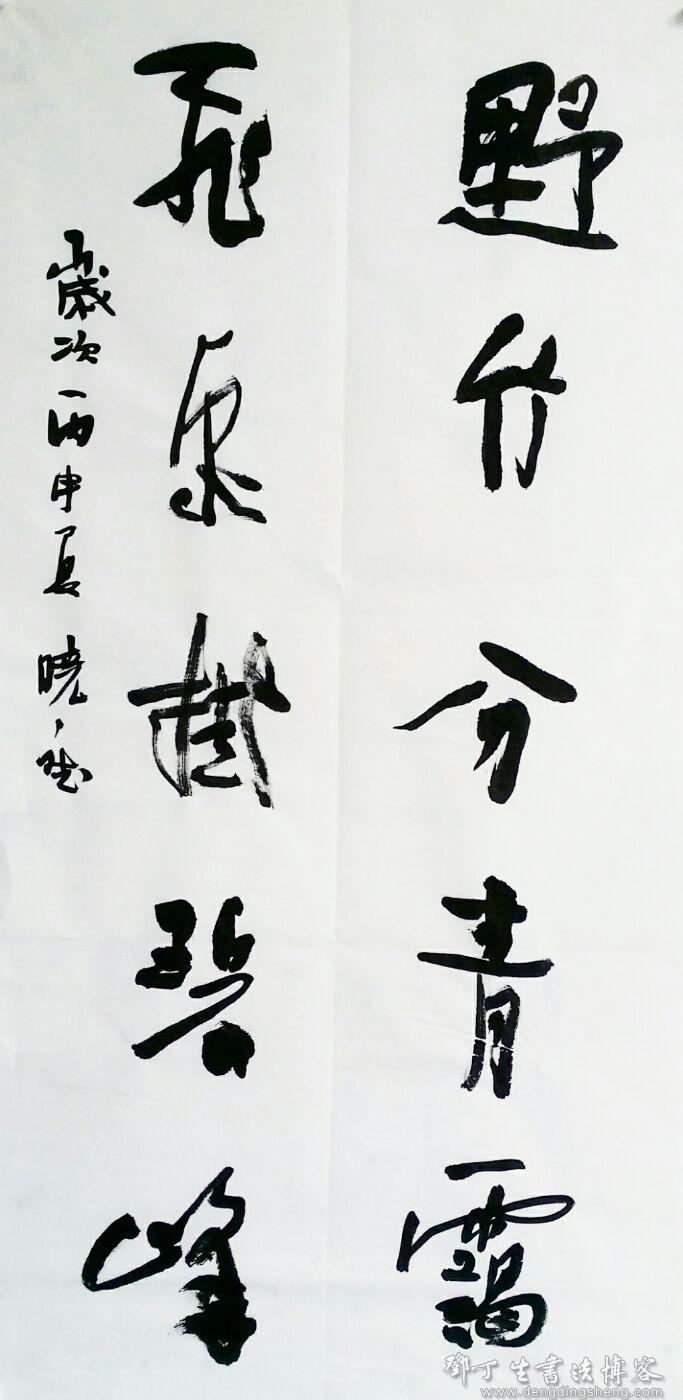 野竹分青靄
飛泉挂碧峰
歲次丙申夏 曉
鄧丁生書法博客
www.dengdingsheng.com